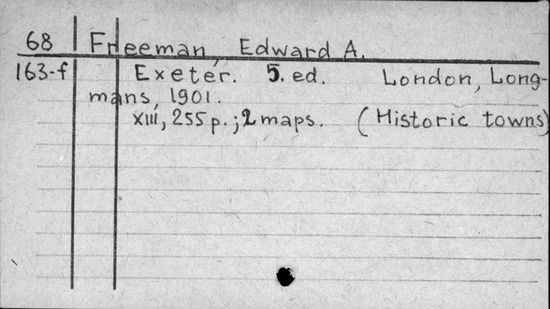 68 Freeman, Edward A.
163-f Exeter. 5. ed. London, Long-
mans, 1901.
XIII, 255 p.; 2 maps. (Historic towns)